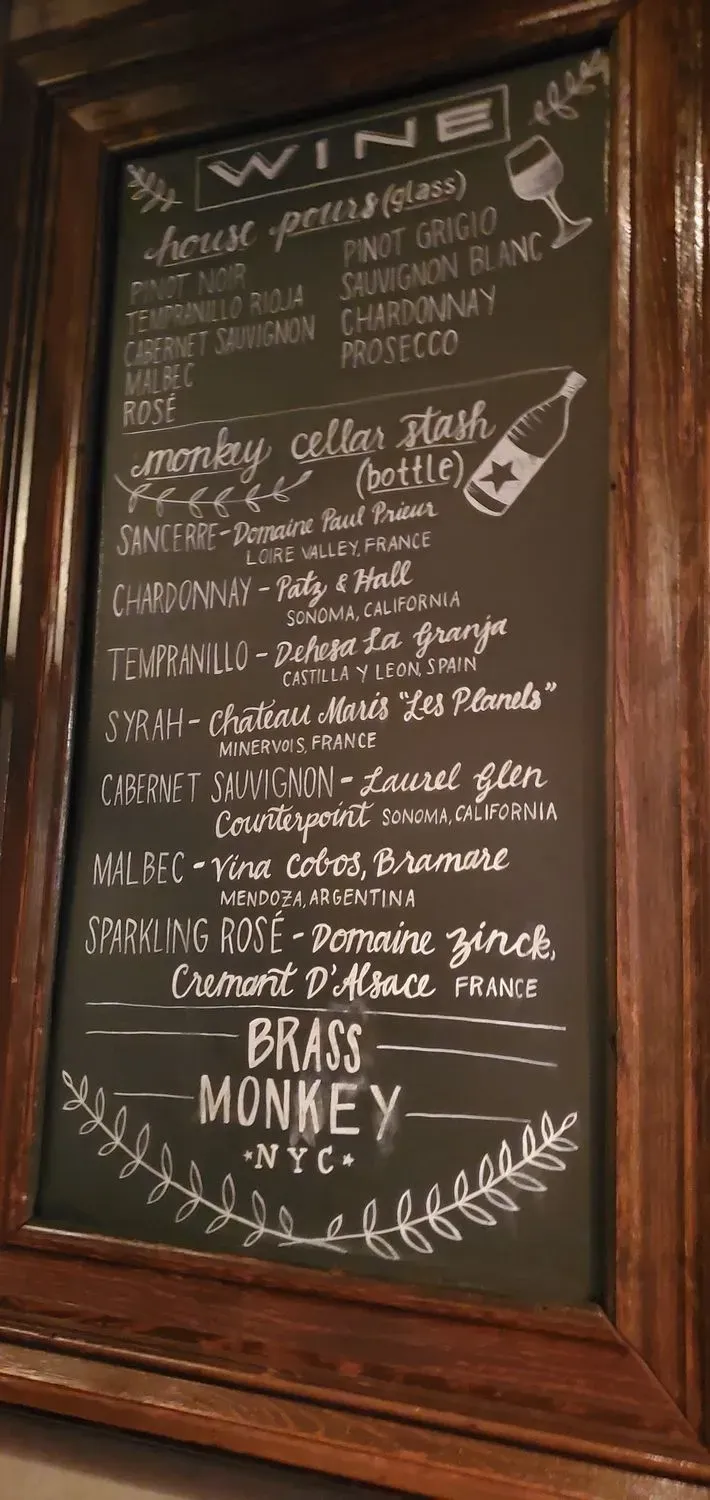 WINE
house pours (glass)
PINOT NOIR
TEMPRANILLO RIOJA
CABERNET SAUVIGNON
MALBEC
ROSÉ
PINOT GRIGIO
SAUVIGNON BLANC
CHARDONNAY
PROSECCO
monkey cellar stash
(bottle)
SANCERRE - Domaine Paul Prieur
LOIRE VALLEY, FRANCE
CHARDONNAY - Patz & Hall
SONOMA, CALIFORNIA
TEMPRANILLO - Dehesa La Granja
CASTILLA Y LEON, SPAIN
SYRAH - Chateau Maris "Les Planels"
MINERVOIS, FRANCE
CABERNET SAUVIGNON - Laurel Glen
Counterpoint SONOMA, CALIFORNIA
MALBEC - Vina Cobos, Bramare
MENDOZA, ARGENTINA
SPARKLING ROSÉ - Domaine Zinck,
Cremant D'Alsace FRANCE
BRASS
MONKEY
*NYC*